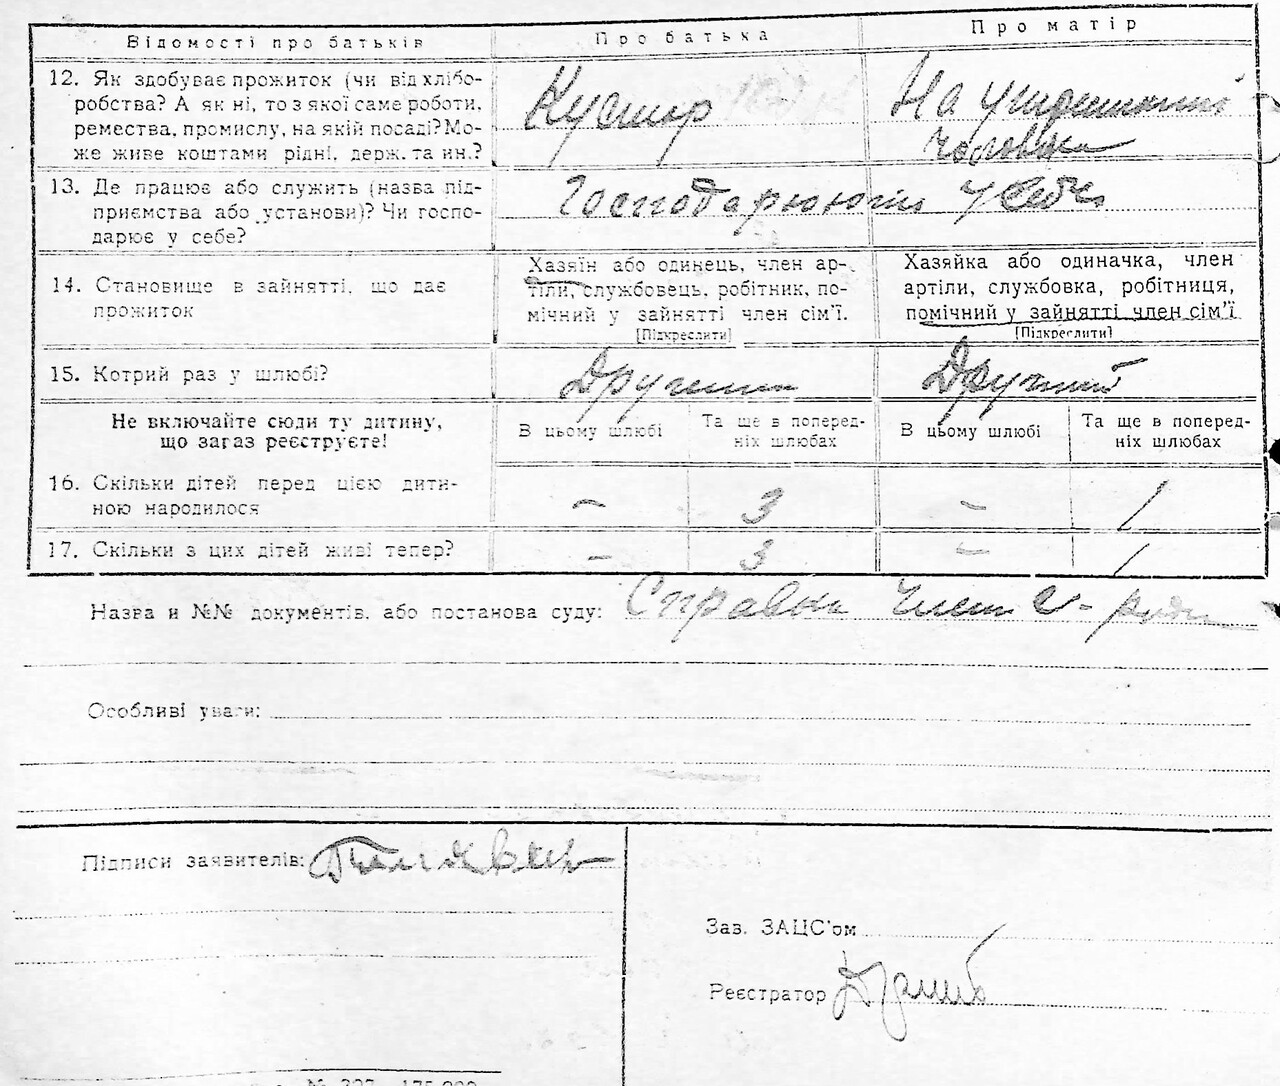 Відомості про батьків
Про батька
Про матір
12. Як здобуває прожиток (чи від хлібо-
робства? А як ні, то з якої саме роботи,
ремества, промислу, на якій посаді? Мо-
же живе коштами рідні, держ. та ин.?
Кушнір
На утриманні
чоловіка
13. Де працює або служить (назва під-
приємства або установи)? Чи госпо-
дарює у себе?
Господарюють у себе
14. Становище в зайнятті, що дає
прожиток
Хазяїн або одинець, член ар-
тіли, службовець, робітник, по-
мічний у зайнятті член сім'ї.
[Підкреслити]
Хазяйка або одиначка, член
артіли, службовка, робітниця,
помічний у зайнятті член сім'ї
[Підкреслити]
15. Котрий раз у шлюбі?
Другий
Другий
Не включайте сюди ту дитину,
що зараз реєструєте!
В цьому шлюбі
Та ще в поперед-
ніх шлюбах
В цьому шлюбі
Та ще в поперед-
ніх шлюбах
16. Скільки дітей перед цією дити-
ною народилося
–
3
–
1
17. Скільки з цих дітей живі тепер?
–
3
–
1
Назва и №№ документів, або постанова суду: Справка
Особливі уваги:
Підписи заявителів:
Зав. ЗАЦС'ом
Реєстратор
№ 327 175.000